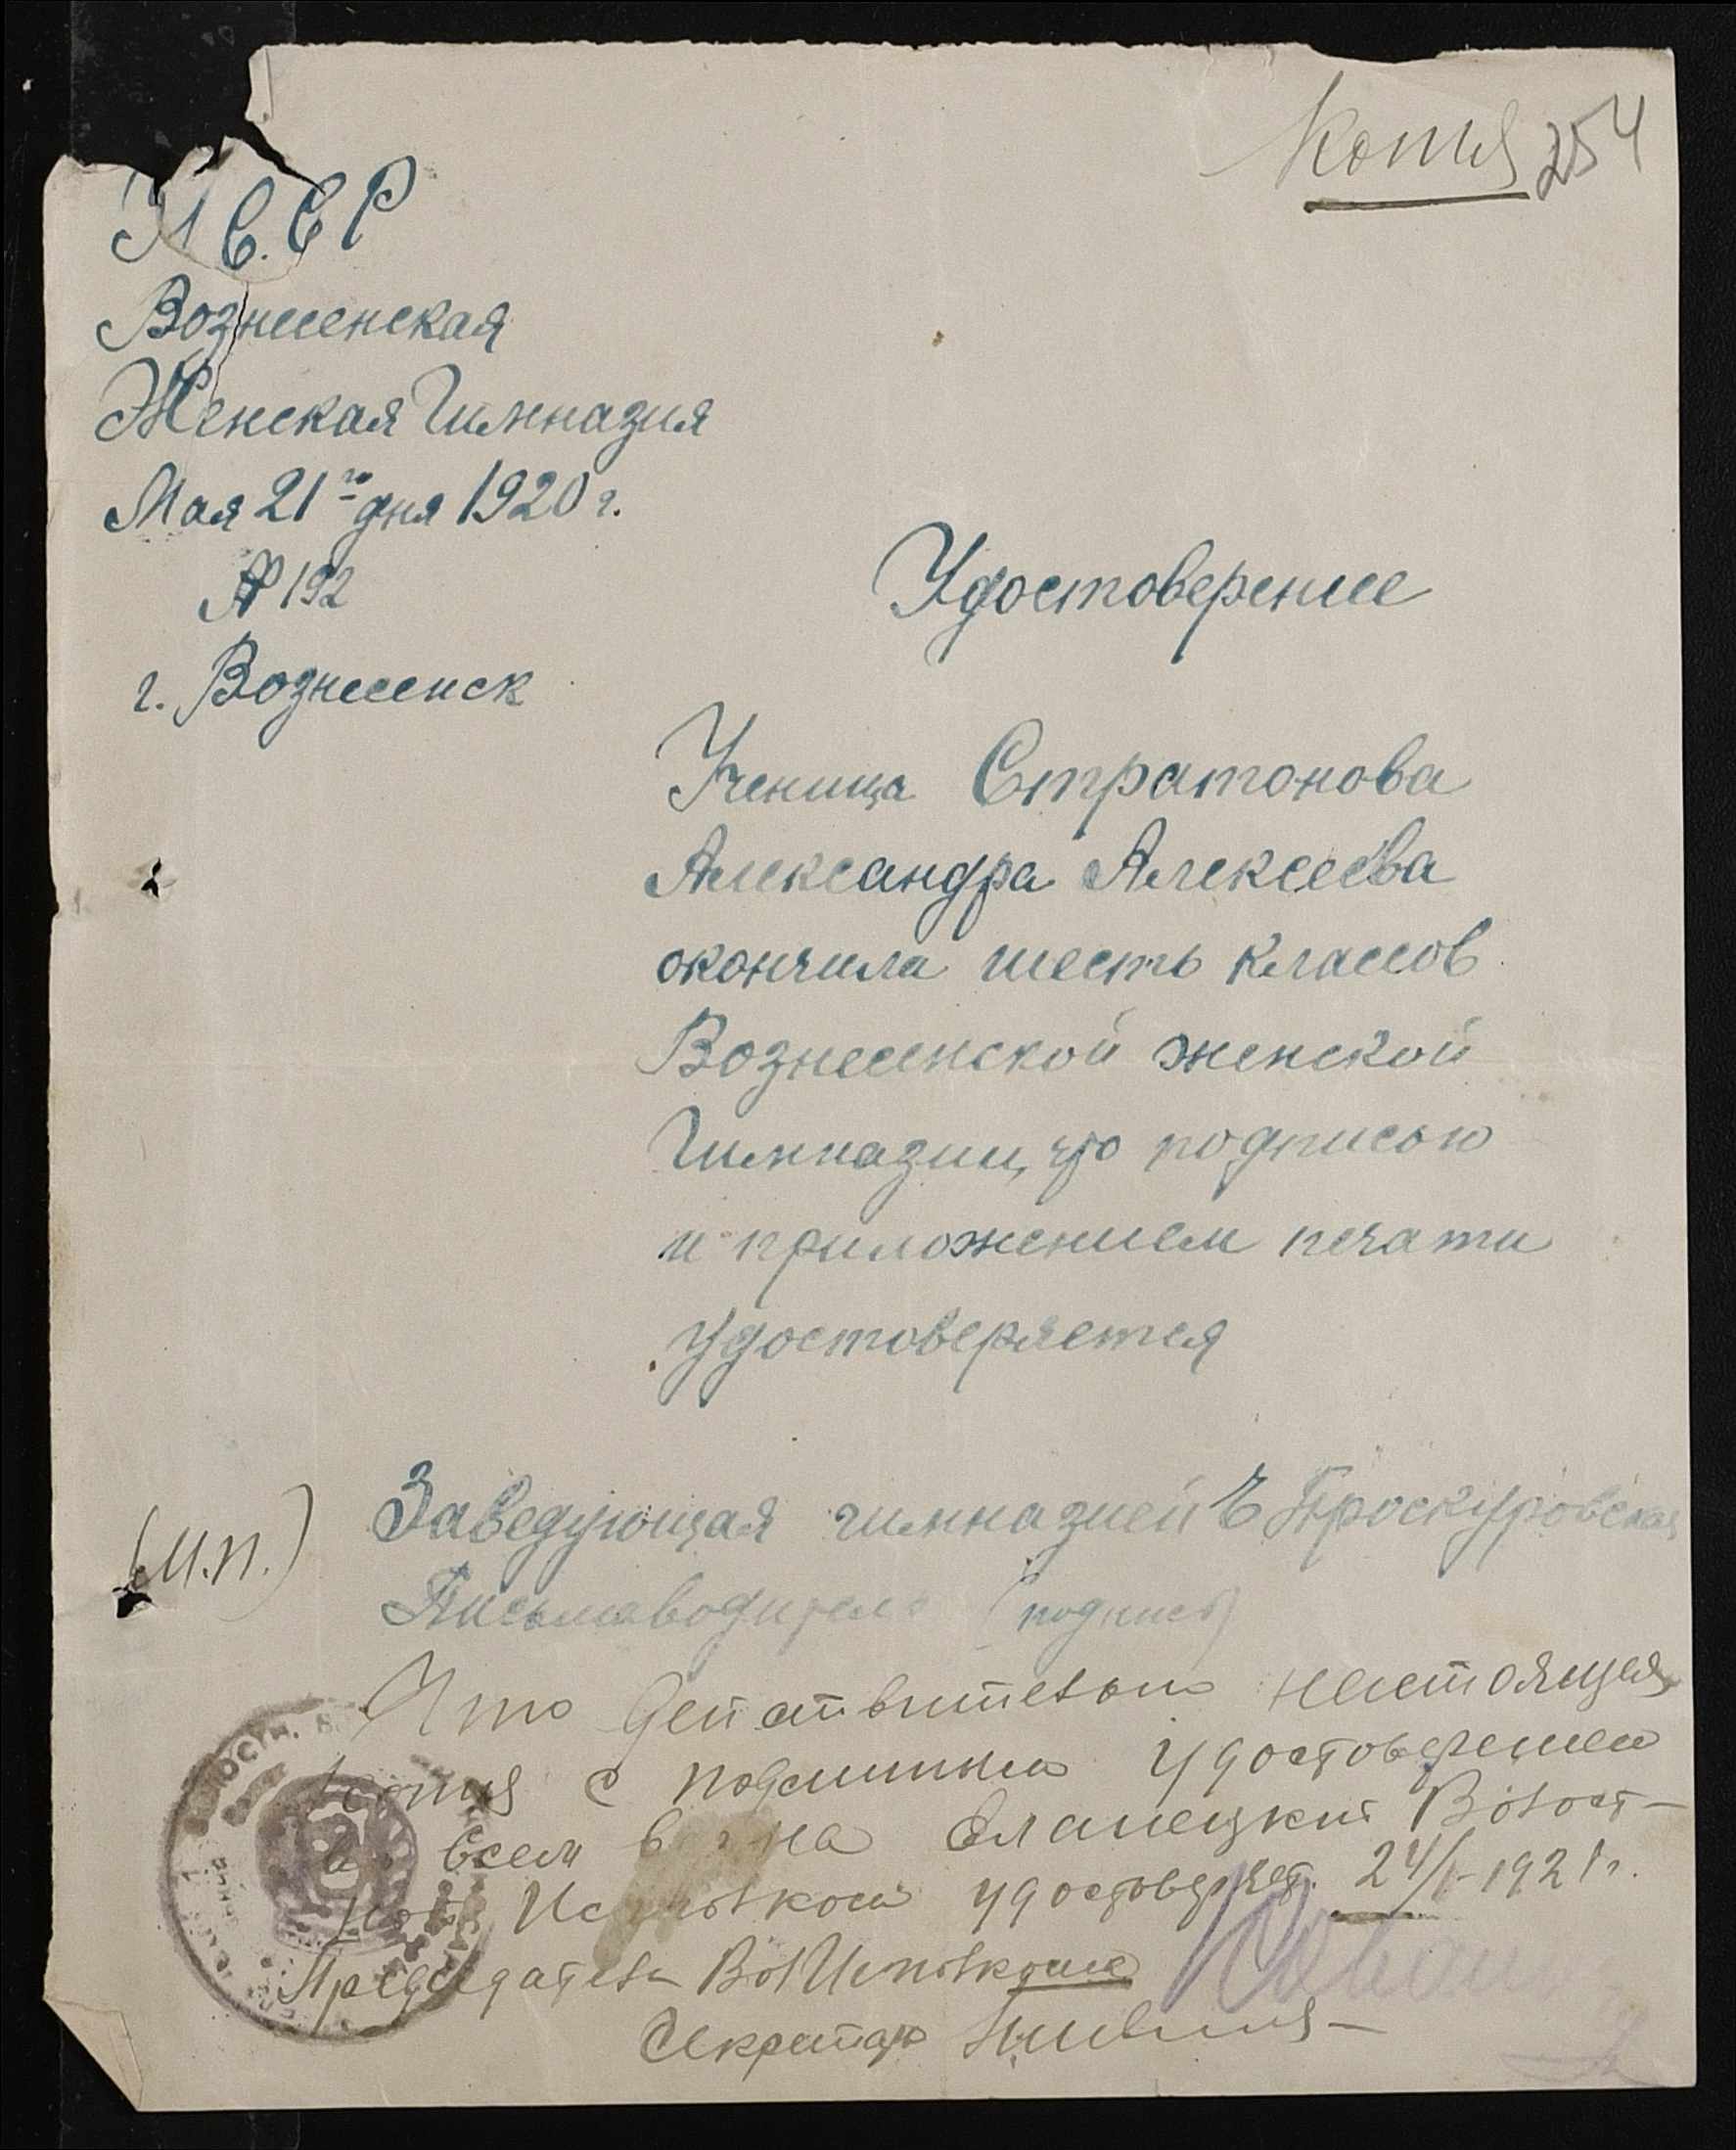 Копия 254
У С.С.Р
Вознесенская
Женская Гимназия
Мая 21го дня 1920 г.
№ 192
г. Вознесенск
Удостоверение
Ученица Стратонова
Александра Алексеева
окончила шесть классов
Вознесенской женской
Гимназии, что подписью
и приложением печати
удостоверяется
Заведующая гимназией Е Проскуровская
(М.П.)
Письмаводитель (подпись)
Что действительно настоящая
копия с подлинным удостоверением
во всем верна Еланецкий Волост-
ной Исполком удостоверяет. 24/I-1921 г.
Председатель ВолИсполкома
Секретарь